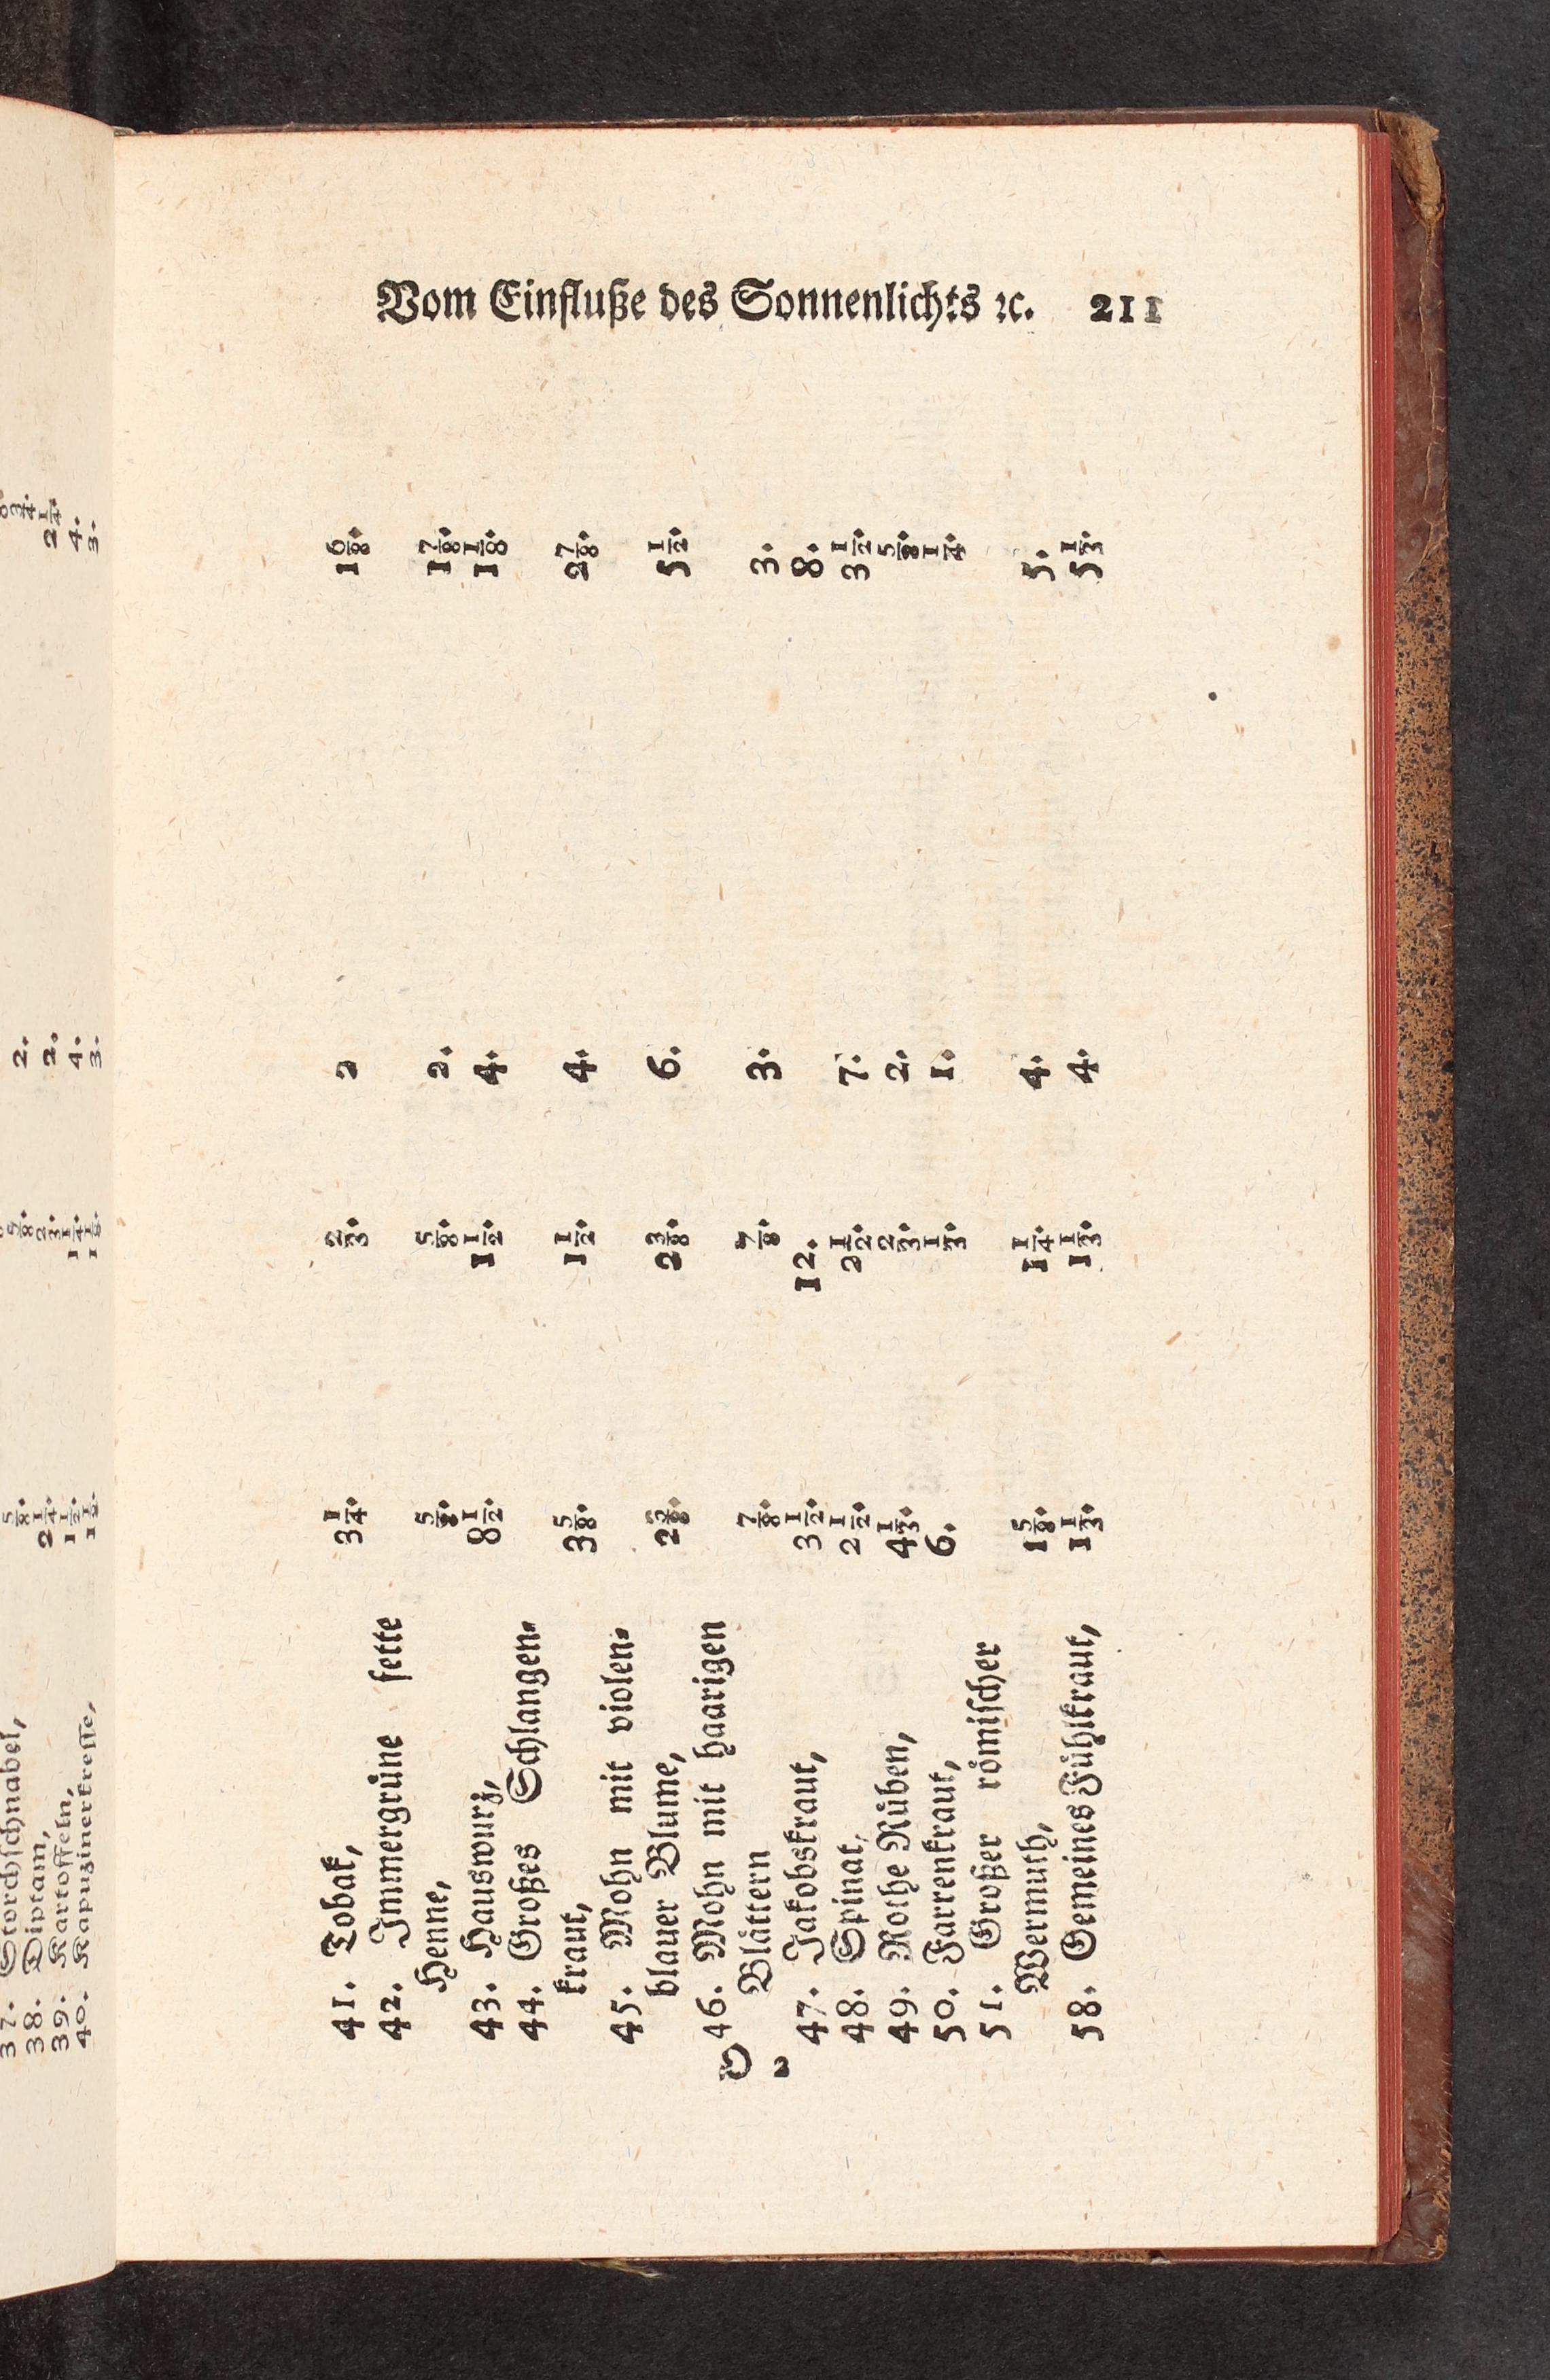 Vom Einfluße des Sonnenlichts ꝛc. 211
41. Tobak, 3 1/4. 2/3. 2 1 6/8.
42. Immergrůne fette
Henne, 5/8. 5/8. 2. 1 7/8.
43. Hauswurz, 8 1/2. 1 1/2. 4. 1 1/8.
44. Großes Schlangen-
kraut, 3 5/8. 1 1/2. 4. 2 7/8.
45. Mohn mit violen-
blauer Blume, 2 5/8. 2 3/8. 6. 5 1/2.
46. Mohn mit haarigen
Blåttern 7/8. 7/8. 3. 3.
47. Jakobskraut, 3 1/2. 12. 8.
48. Spinat, 2 1/2. 2 1/2. 7. 3 1/2.
49. Rothe Růben, 4 1/3. 2/3. 2. 5/8.
50. Farrenkraut, 6. 1/3. 1. 1/4.
51. Großer rőmischer
Wermuth, 1 5/8. 1 1/4. 4. 5.
58. Gemeines Fůhlkraut, 1 1/3. 1 1/3. 4. 5 1/3.
O 2
37. Storchschnabel, 5/8. 5/8. 2. 3/4.
38. Diptam, 2 1/4. 2/3. 2. 2 1/4.
39. Kartoffeln, 1 1/2. 1 1/4. 4. 4.
40. Kapuzinerkresse, 1 1/2. 1 1/8. 3. 3.